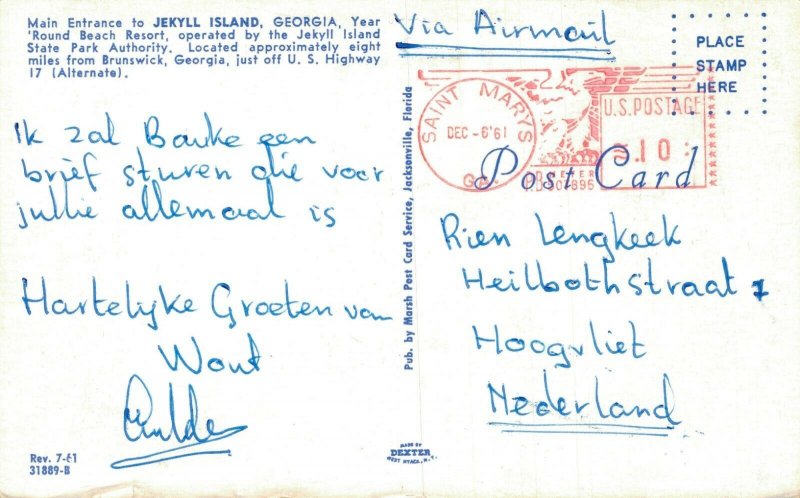 Main Entrance to JEKYLL ISLAND, GEORGIA, Year
'Round Beach Resort, operated by the Jekyll Island
State Park Authority. Located approximately eight
miles from Brunswick, Georgia, just off U. S. Highway
17 (Alternate).
Via Airmail
PLACE
STAMP
HERE
SAINT MARYS
DEC -6'61
GA.
U.S. POSTAGE
.10
Post Card
Ik zal Bauke een
brief sturen die voor
jullie allemaal is
Hartelijke Groeten van
Wout
Pub. by Marsh Post Card Service, Jacksonville, Florida
Rien Lengkeek
Heilbothstraat 1
Hoogvliet
Nederland
Rev. 7-61
31889-B
MADE BY
DEXTER
WEST NYACK, N.Y.